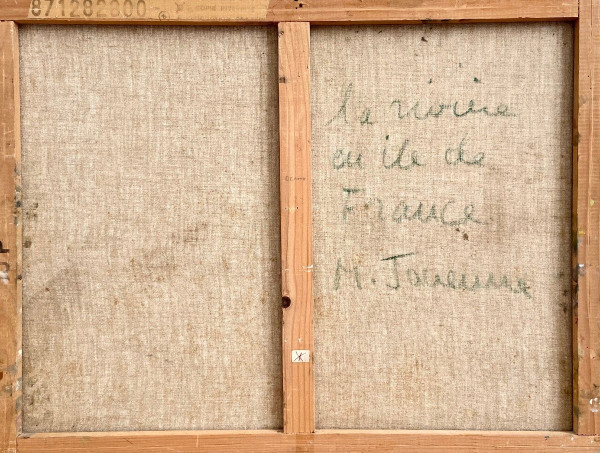 871282800
la rivière
en ile de
France
M. Jouenne